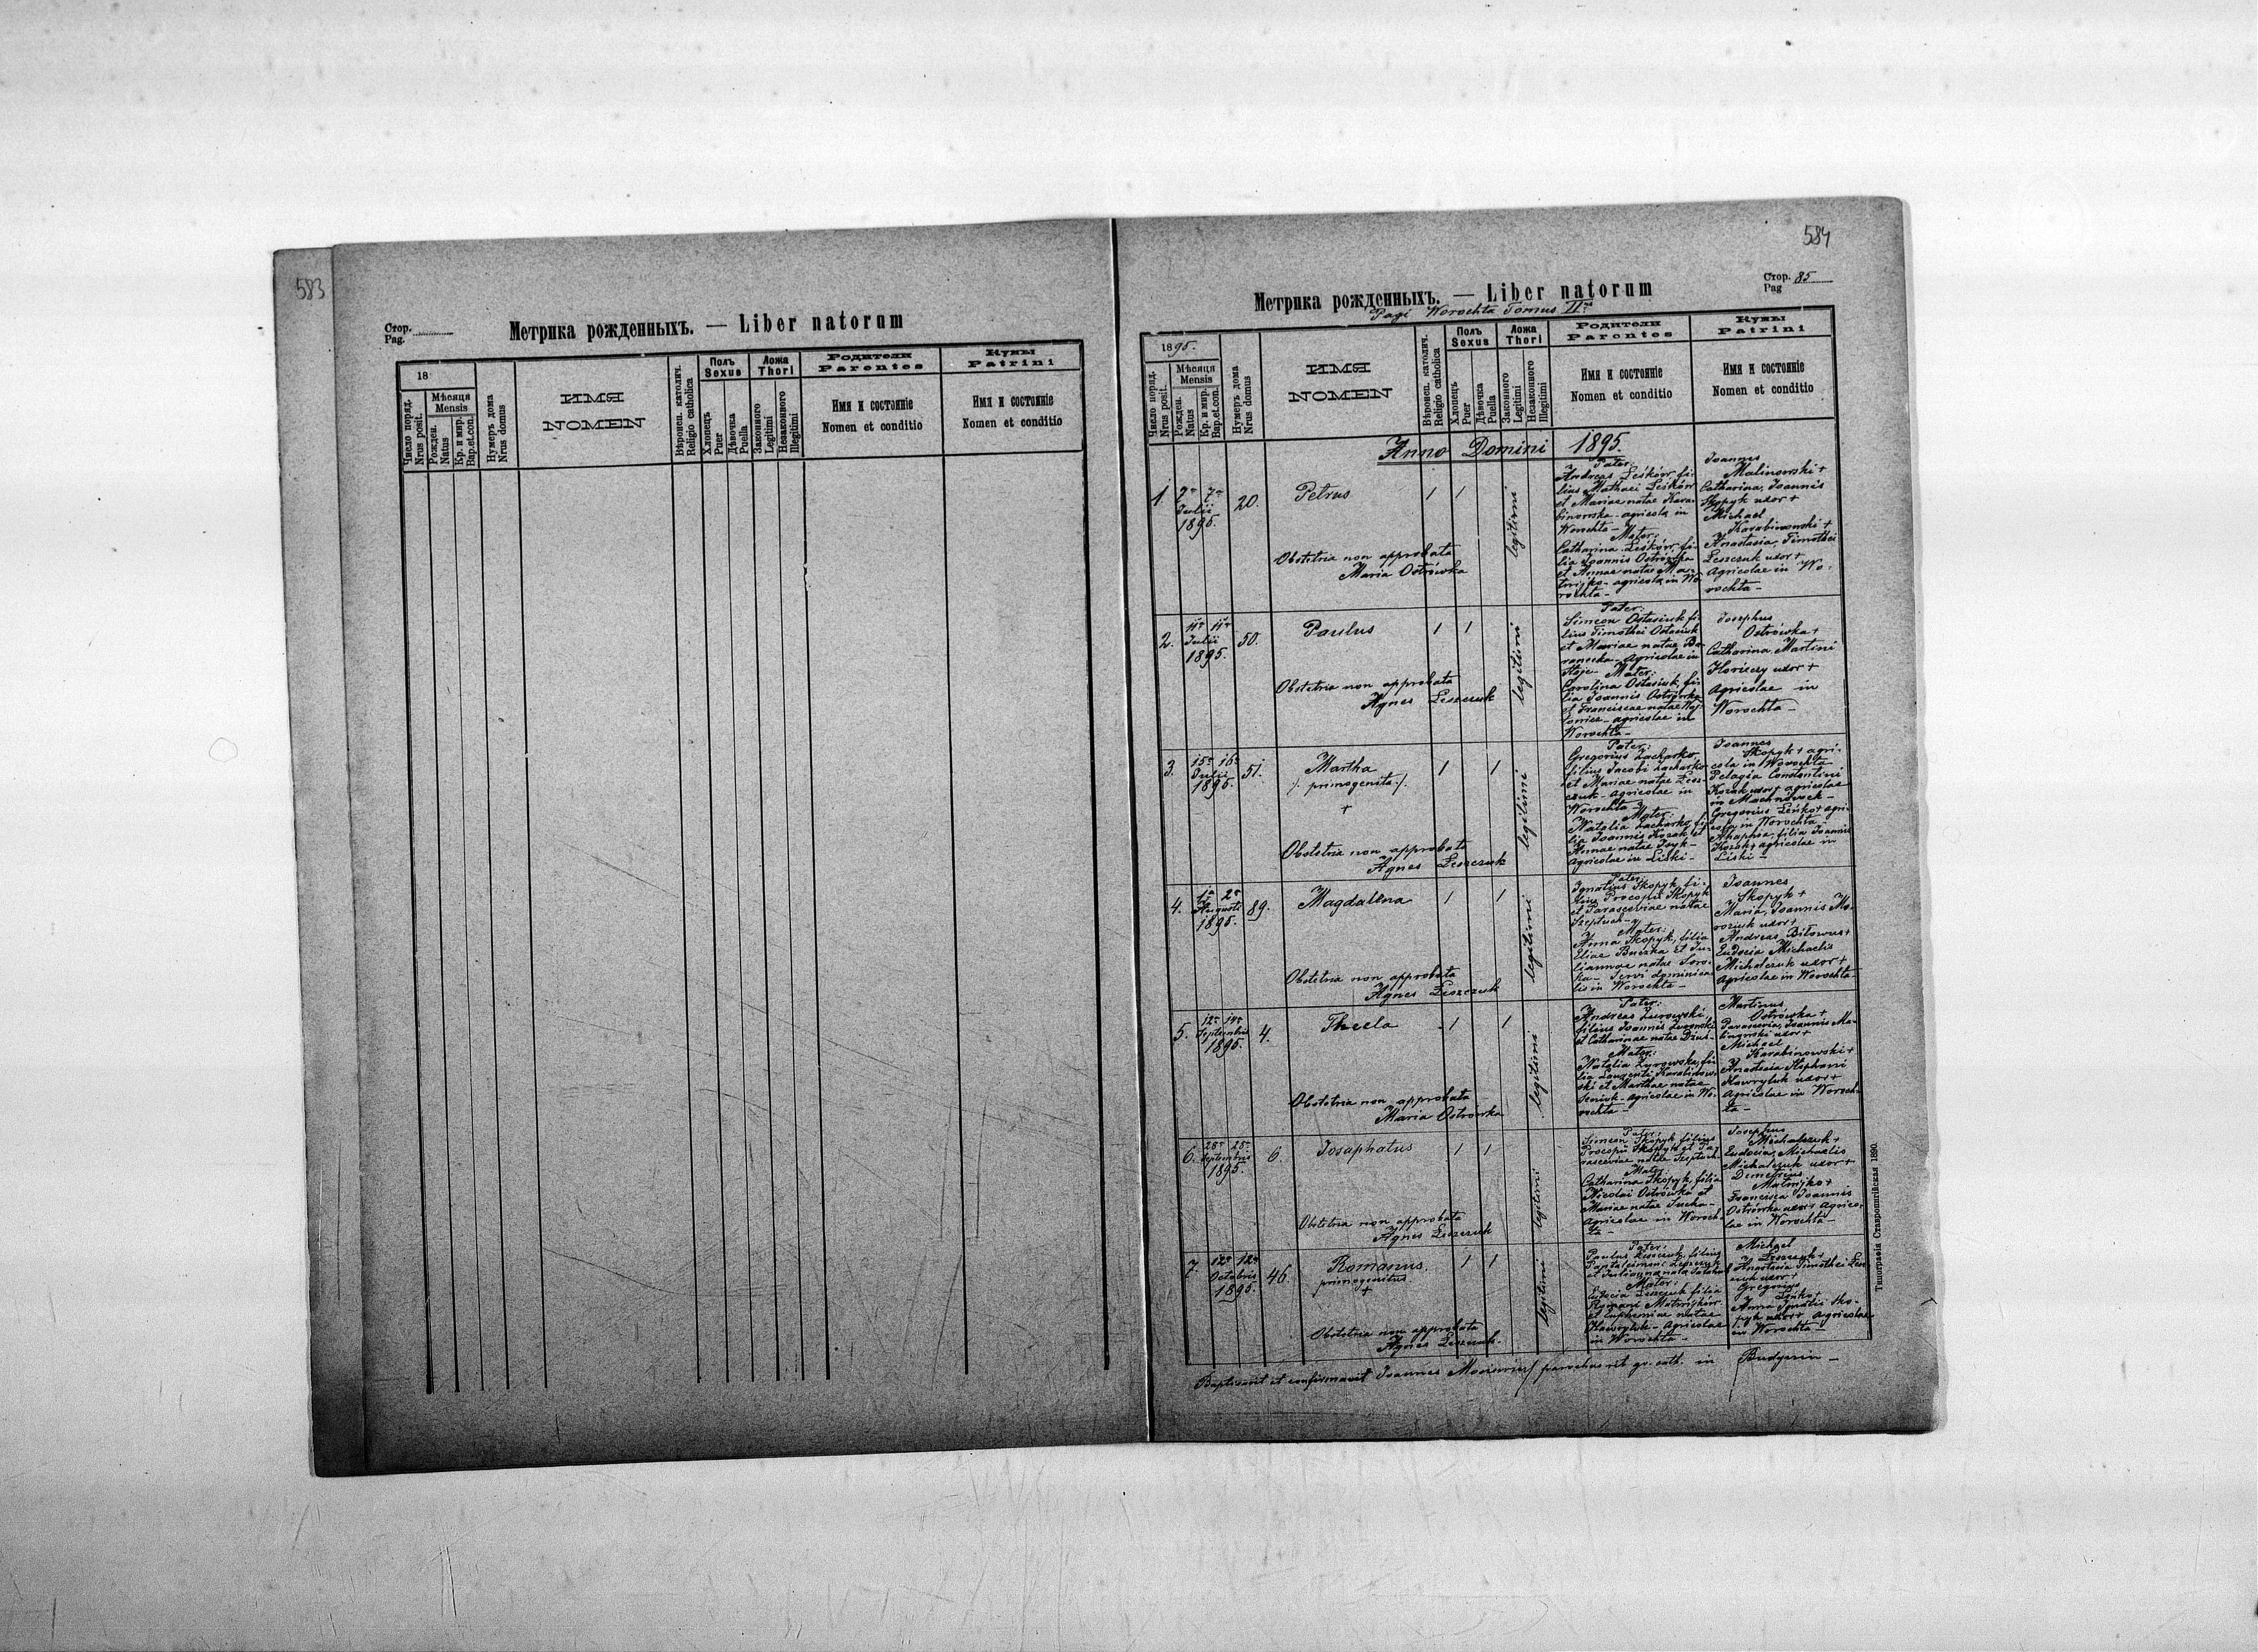 583
Стор.
Pag.
Метрика рожденныхъ. — Liber natorum
18
Число поряд.
Nrus posit.
Мѣсяця
Mensis
Рожден.
Natus
Кр. и мир.
Bap.et.con.
Нумеръ дома
Nrus domus
ИМЯ
NOMEN
Вѣроисп. католич.
Religio catholica
Полъ
Sexus
Хлопецъ
Puer
Дѣвочка
Puella
Ложа
Thori
Законного
Legitimi
Незаконного
Illegitimi
Родители
Parentes
Имя и состоянiе
Nomen et conditio
Кумы
Patrini
Имя и состоянiе
Nomen et conditio
584
Стор. 85
Pag
Метрика рожденныхъ. — Liber natorum
Pagi Worochta Tomus II
1895.
Число поряд.
Nrus posit.
Мѣсяця
Mensis
Рожден.
Natus
Кр. и мир.
Bap.et.con.
Нумеръ дома
Nrus domus
ИМЯ
NOMEN
Вѣроисп. католич.
Religio catholica
Полъ
Sexus
Хлопецъ
Puer
Дѣвочка
Puella
Ложа
Thori
Законного
Legitimi
Незаконного
Illegitimi
Родители
Parentes
Имя и состоянiе
Nomen et conditio
Кумы
Patrini
Имя и состоянiе
Nomen et conditio
Anno Domini 1895.
1. 7
Julii
1895.
20.
Petrus
Obstetrix non approbata
Maria Ostrówka
legitimi
Pater:
Andreas Leśków, fi-
lius Mathaei Leśków
et Mariae natae Kara-
binowska - agricola in
Worochta -
Mater:
Catharina Leśków, fi-
lia Joannis Ostrówka
et Annae natae Ma-
twijko - agricola in Wo-
rochta -
Joannes
Malinowski +
Catharina, Joannis
Skopyk uxor +
Michael
Karabinowski +
Anastasia, Timothei
Leszczuk uxor +
Agricolae in Wo-
rochta -
2. 11 11
Julii
1895.
50.
Paulus
Obstetrix non approbata
Agnes Leszczuk
legitimi
Pater:
Simeon Ostasiuk fi-
lius Timothei Ostasiuk
et Mariae natae Ba-
Agricolae in
Mater:
Carolina Ostasiuk, fi-
lia Joannis Ostrówka
et Franciscae natae Woj-
agricolae in
Worochta -
Josephus
Ostrówka +
Catharina Martini
uxor +
Agricolae in
Worochta -
3. 15 16
Julii
1895.
51.
Martha
/. primogenita ./.
+
Obstetrix non approbata
Agnes Leszczuk
legitimi
Pater:
Gregorius Zacharko,
filius Jacobi Zacharko
et Mariae natae Lesz-
czuk - agricolae in
Worochta -
Mater:
Natalia Zacharko, fi-
lia Joannis Kozak et
Annae natae
Agricolae in Liski -
Joannes
Skopyk + agri-
cola in Worochta -
Pelagia Constantini
Kozak uxor + agricolae
in
Gregorius Leśko + agri-
cola in Worochta
filia Joannis
Kozak + agricolae in
Liski -
4. 1 2
Augusti
1895.
89.
Magdalena
Obstetrix non approbata
Agnes Leszczuk
legitimi
Pater:
Ignatius Skopyk, fi-
lius Procopii Skopyk
et Parasceviae natae
Mater:
Anna Skopyk, filia
Eliae et Ju-
liannae natae Soro-
ka - Servi dominica-
lis in Worochta -
Joannes
Skopyk +
Maria, Joannis Mo-
roziuk uxor +
Andreas Biłowus +
Eudocia Michaelis
Michalczuk uxor +
Agricolae in Worochta -
5. 12 14
Septembris
1895.
4.
Thecla
Obstetrix non approbata
Maria Ostrówka
legitimi
Pater:
Andreas Żurowski,
filius Joannis Żurowski
et Catharinae natae
Mater:
Natalia Żurowska, fi-
lia Laurentii Karabinow-
ski et Marthae natae
Seniuk - Agricolae in Wo-
rochta -
Martinus
Ostrówka +
Parascevia, Joannis Ma-
linowski uxor +
Michael
Karabinowski +
Anastasia Stephani
Hawryluk uxor +
Agricolae in Woroch-
ta -
6. 28 28
Septembris
1895.
6.
Josaphatus
Obstetrix non approbata
Agnes Leszczuk
legitimi
Pater:
Simeon Skopyk, filius
Procopii Skopyk et Pa-
rasceviae natae
Mater:
Catharina Skopyk, filia
Nicolai Ostrówka et
Mariae natae Sucha -
Agricolae in Woroch-
ta -
Josephus
Michalczuk +
Eudocia, Michaelis
Michalczuk uxor +
Demetrius
Matwijko +
Francisca Joannis
Ostrówka uxor + Agrico-
lae in Worochta -
7. 12 12
Octobris
1895.
46.
Romanus.
primogenitus
+
Obstetrix non approbata
Agnes Leszczuk.
legitimi
Pater:
Paulus Leszczuk, filius
Pantaleimoni Leszczuk
et Juliannae natae
Mater:
Eudocia Leszczuk filia
Romani
et Euphemiae natae
Hawryluk - Agricolae
in Worochta -
Michael
Leszczuk +
Anastasia Timothei Lesz-
czuk uxor +
Gregorius
Leśko +
Anna Ignatii Sko-
pyk uxor + Agricolae
in Worochta -
Baptisavit et confirmavit Joannes parochus rit. gr. cath. in Budynin -
Типографiя Ставропигiйская 1890.